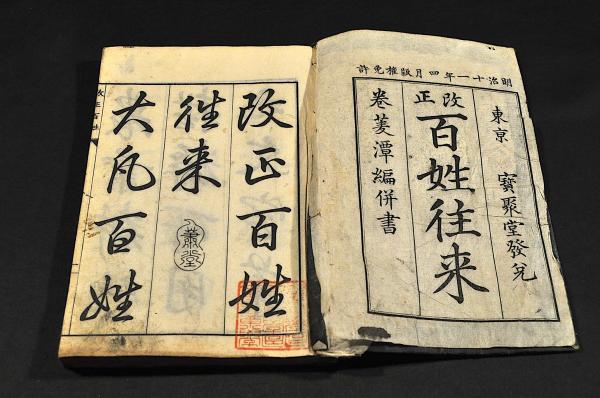 明治十一年四月版權免許
東京 寶聚堂發兌
改正
百姓往来
巻菱潭編併書
改正百姓
往来
大凡百姓